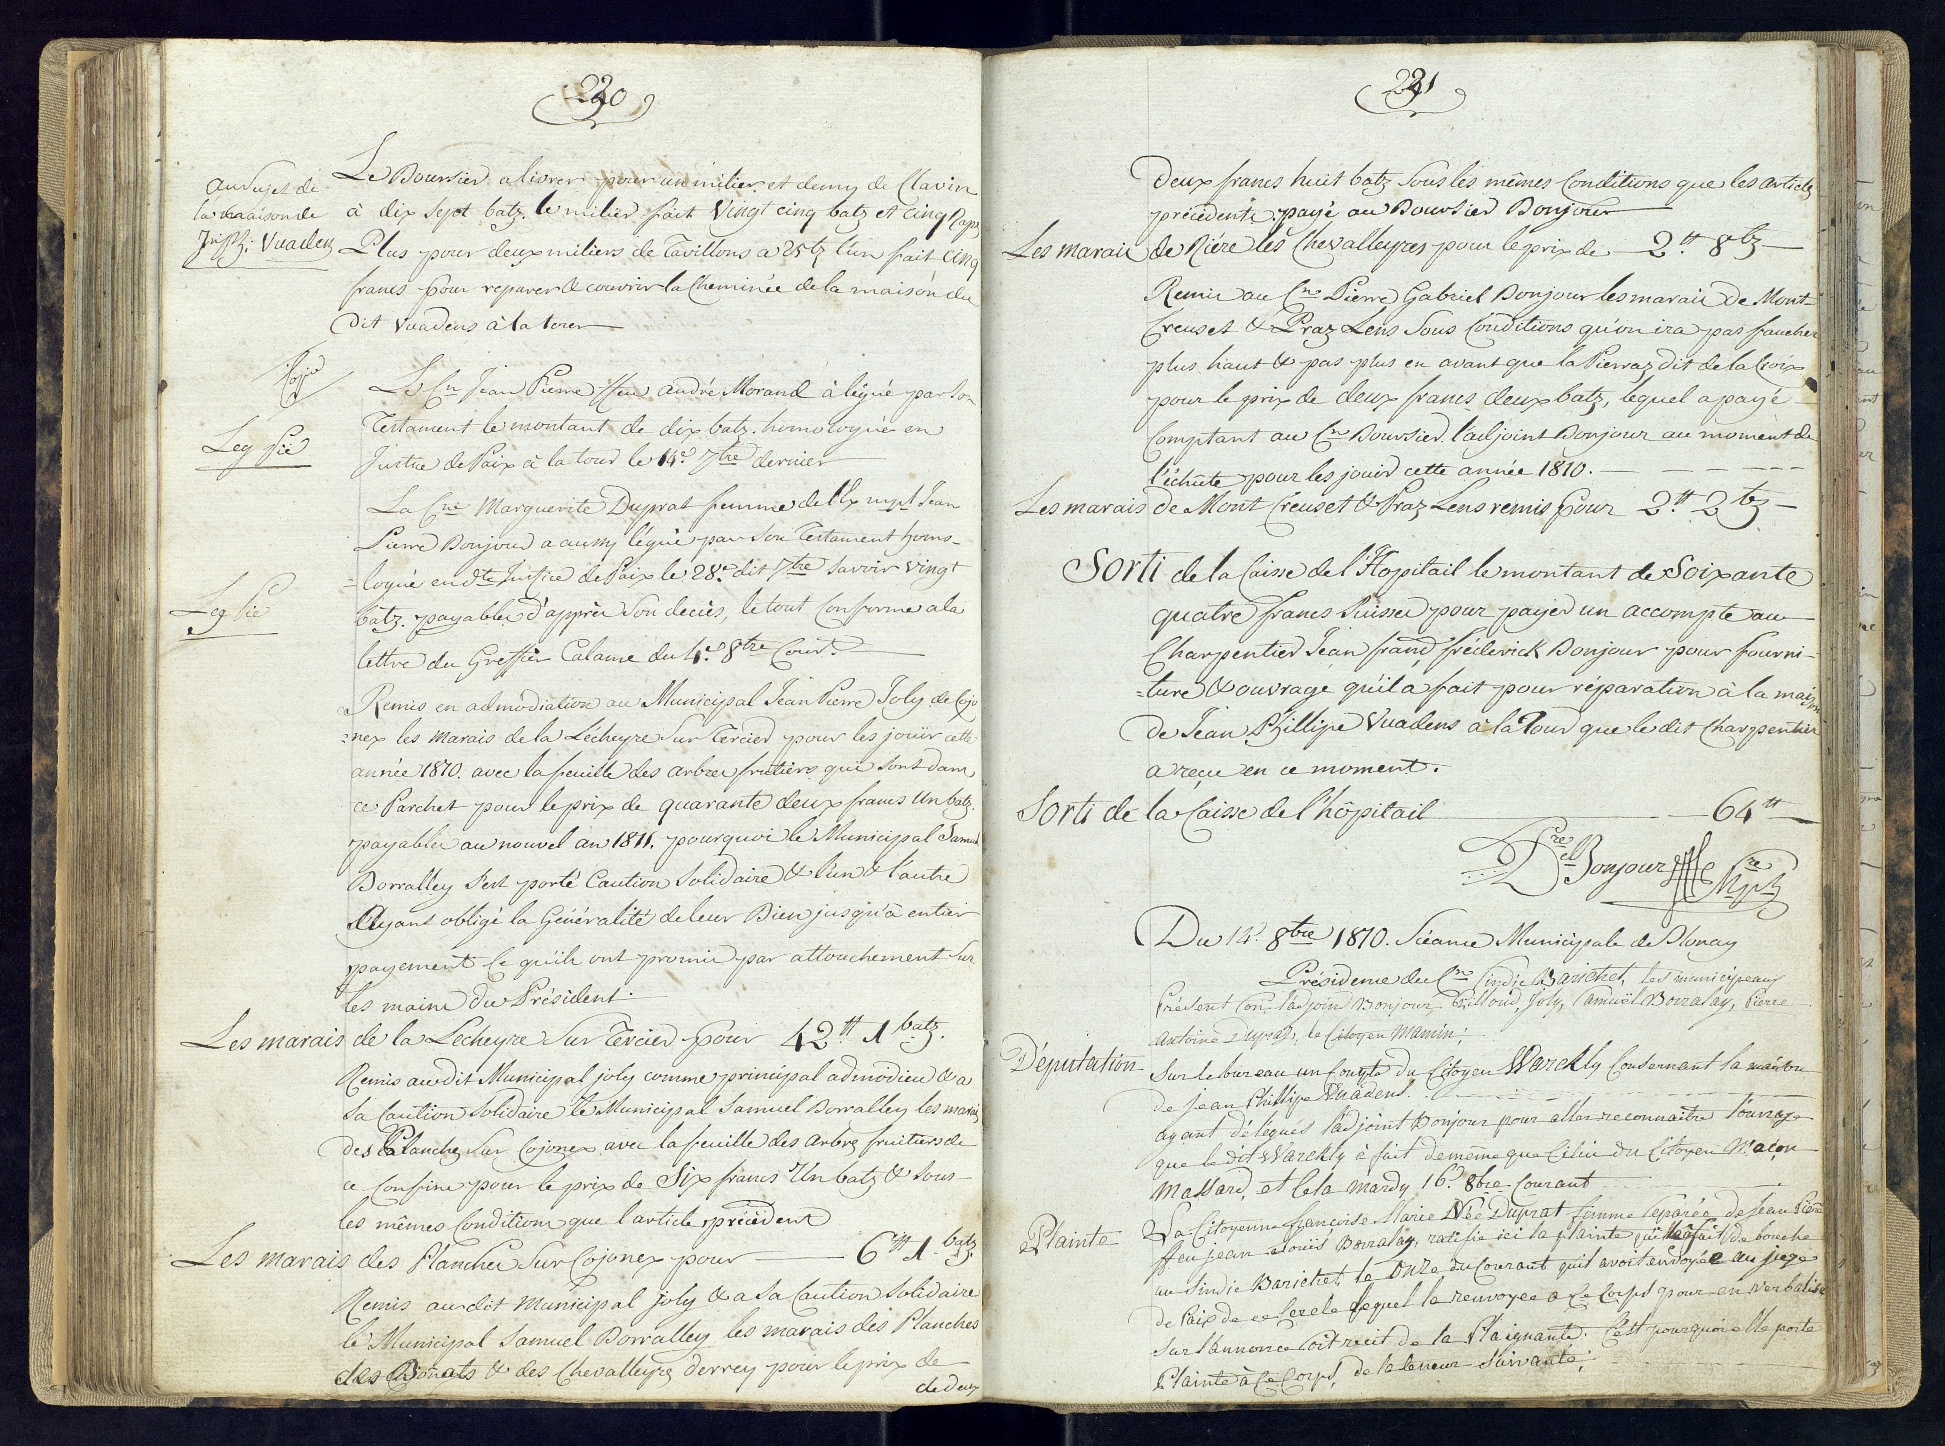 220
Au Sujet de
la maison de
Jn Ph: Vuadens
Le Boursier a livrer pour un milier et demy de Clavin
à dix sept batz. le milier fait Vingt cinq batz et cinq Rapz
Plus pour deux miliers de Tavillons a 25 bz l'un fait cinq
francs pour reparer & couvrir la Cheminée de la maison du
dit Vuadens à la tour
Copie
Leg Pie
Le Cn Jean Pierre ffeu André Morand à légué par Son
Testament le montant de dix batz. homologué en
Justice de Paix à la tour le 14e 7bre dernier
La Cne Marguerite Duprat femme de l'Ex mpl Jean
Pierre Bonjour a aussy légué par Son Testament homo-
Leg Pie
=logué en dte Justice de Paix le 28e dit 7bre Savoir Vingt
batz. payables d'apprès Son decès, le tout Conforme a la
lettre du Greffier Calame du 4e 8bre Cour.t
Remis en admodiation au Municipal Jean Pierre Joly de Cojo
=nex les marais de la Lecheyre Sur Tercier pour les jouir cette
année 1810. avec la feuille des arbres fruitiers qui Sont dans
ce Parchet pour le prix de quarante deux francs Un batz.
payables au nouvel an 1811. pourquoi le Municipal Samuel
Borralley S'est porté Caution Solidaire & l'un & l'autre
Ayant obligé la Généralité de leur Bien jusqu'à entier
payement Ce qu'ils ont promis par attouchement Sur
les mains du Président.
Les marais de la Lecheyre Sur Tercier pour 42 tt 1 batz.
Remis au dit Municipal joly comme principal admodieu & a
Sa Caution Solidaire le Municipal Samuel Borralley les marais
des Planches Sur Cojonex avec la feuille des arbres fruitiers de
ce Confine pour le prix de Six francs Un batz & Sous
les mêmes Condition que l'article précédent
Les marais des Planches Sur Cojonex pour 6 tt 1 batz
Remis au dit Municipal joly & a Sa Caution Solidaire
le Municipal Samuel Borralley les marais des Planches
des Bonats & des Chevalleyres derrey pour le prix de
de deux
221
Deux francs huit batz Sous les mêmes Conditions que les articles
précédents payé au Boursier Bonjour
Les marais de Riére les Chevalleyres pour le prix de 2 tt 8 bz
Remis au Cn Pierre Gabriel Bonjour les marais de Mont
Creuset & Praz Lens Sous Conditions qu'on ira pas faucher
plus haut & pas plus en avant que la Pierraz dit de la Croix
pour le prix de deux francs deux batz, lequel a payé
Comptant au Cn Boursier l'adjoint Bonjour au moment de
l'échute pour les jouir cette année 1810.
Les marais de Mont Creuset & Praz Lens remis pour 2 tt 2 bz
Sorti de la Caisse de l'Hopitail le montant de Soixante
quatre francs Suisses pour payer un accompte au
Charpentier Jean frand frédérick Bonjour pour fourni-
=ture & ouvrage qu'il a fait pour réparation à la maison
de Jean Phillipe Vuadens à la Tour que le dit Charpentier
a reçu en ce moment.
Sorti de la Caisse de l'hôpitail 64 tt
Bonjour
Du 14e 8bre 1810. Séance Municipale de Blonay
Présidence du Cn Sindic Barichet, les municipeaux
Présent Con. l'adjoin Bonjour, Joly, Samuël Borralay, Pierre
Antoine Duprat, le Citoyen Mamin;
Députation
Sur le bureau un Compte du Citoyen Warckly Consernant la maison
de Jean Phillipe Vuadens.
ayant délégués l'adjoint Bonjour pour aller reconnaitre l'ouvrage
que le dit Warckly à fait de même que Celui du Citoyen Maçon
Massard, et Cela mardy 16e 8bre Courant
Plainte
La Citoyenne françoise Marie Née Duprat femme separée de Jean Pierre
ffeu jean Louis Borralay, ratifie ici la plainte qu'elle à fait de bouche
au Sindic Barichet le Onze du Courant qu'il avoit envoyée au juge
de Paix de ce Cercle lequel la renvoyee a Ce Corps pour en verbaliser
Sur l'annonce soit récit de la Plaignante. C'est pourquoi elle porte
Plainte à Ce Corps, de la teneur Suivante;